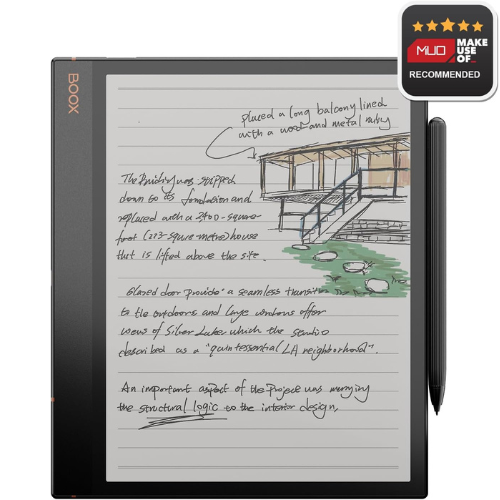 MUO
MAKE
USE
OF_
RECOMMENDED
BOOX
placed a long balcony lined
with a wood and metal
The Building was stripped
down to its foundation and
replaced with a 2400-square-
foot (223-square-metre) house
that is lifted above the site.
Glazed door provide a seamless transition
to the outdoors and large windows offer
views of Silver Lake which the studio
described as a "quintessential LA neighborhood".
An important aspect of the Project was merging
the structural logic to the interior design,